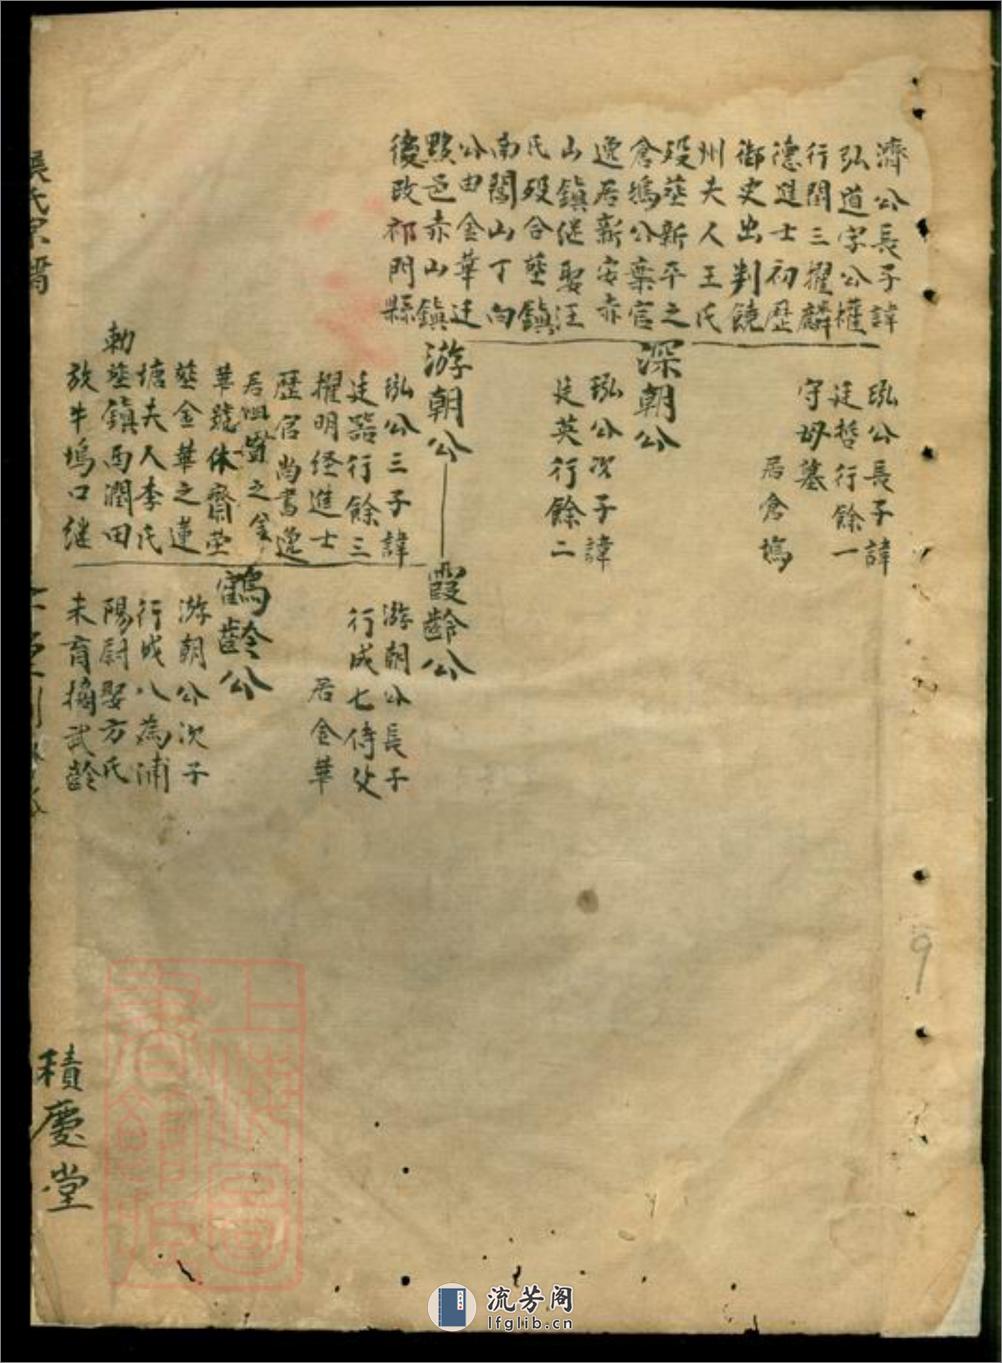 濟公長子諱
弘道字公權
行閏三擢麟
德進士初歷
御史出判饒
州夫人王氏
歿塟新平之
倉塢公棄官
逸居新安赤
山鎮继娶汪
氏歿合塟鎮
南閣山丁向
公由金華迁
黟邑赤山鎮
後改祁門縣
泓公長子諱
廷哲行餘一
守母墓
居倉塢
深朝公
泓公次子諱
廷英行餘二
游朝公
泓公三子諱
廷器行餘三
擢明经進士
歷官尚書逸
居 之金
華號休齋塋
塟金華之蓮
塘夫人李氏
勅塟鎮西潤田
放牛塢口继
霞齡公
游朝公長子
行成七侍父
居金華
鶴齡公
游朝公次子
行成八為浦
陽尉娶方氏
未育撫武齡
積慶堂
上海圖書館藏
9
流芳阁
lfglib.cn